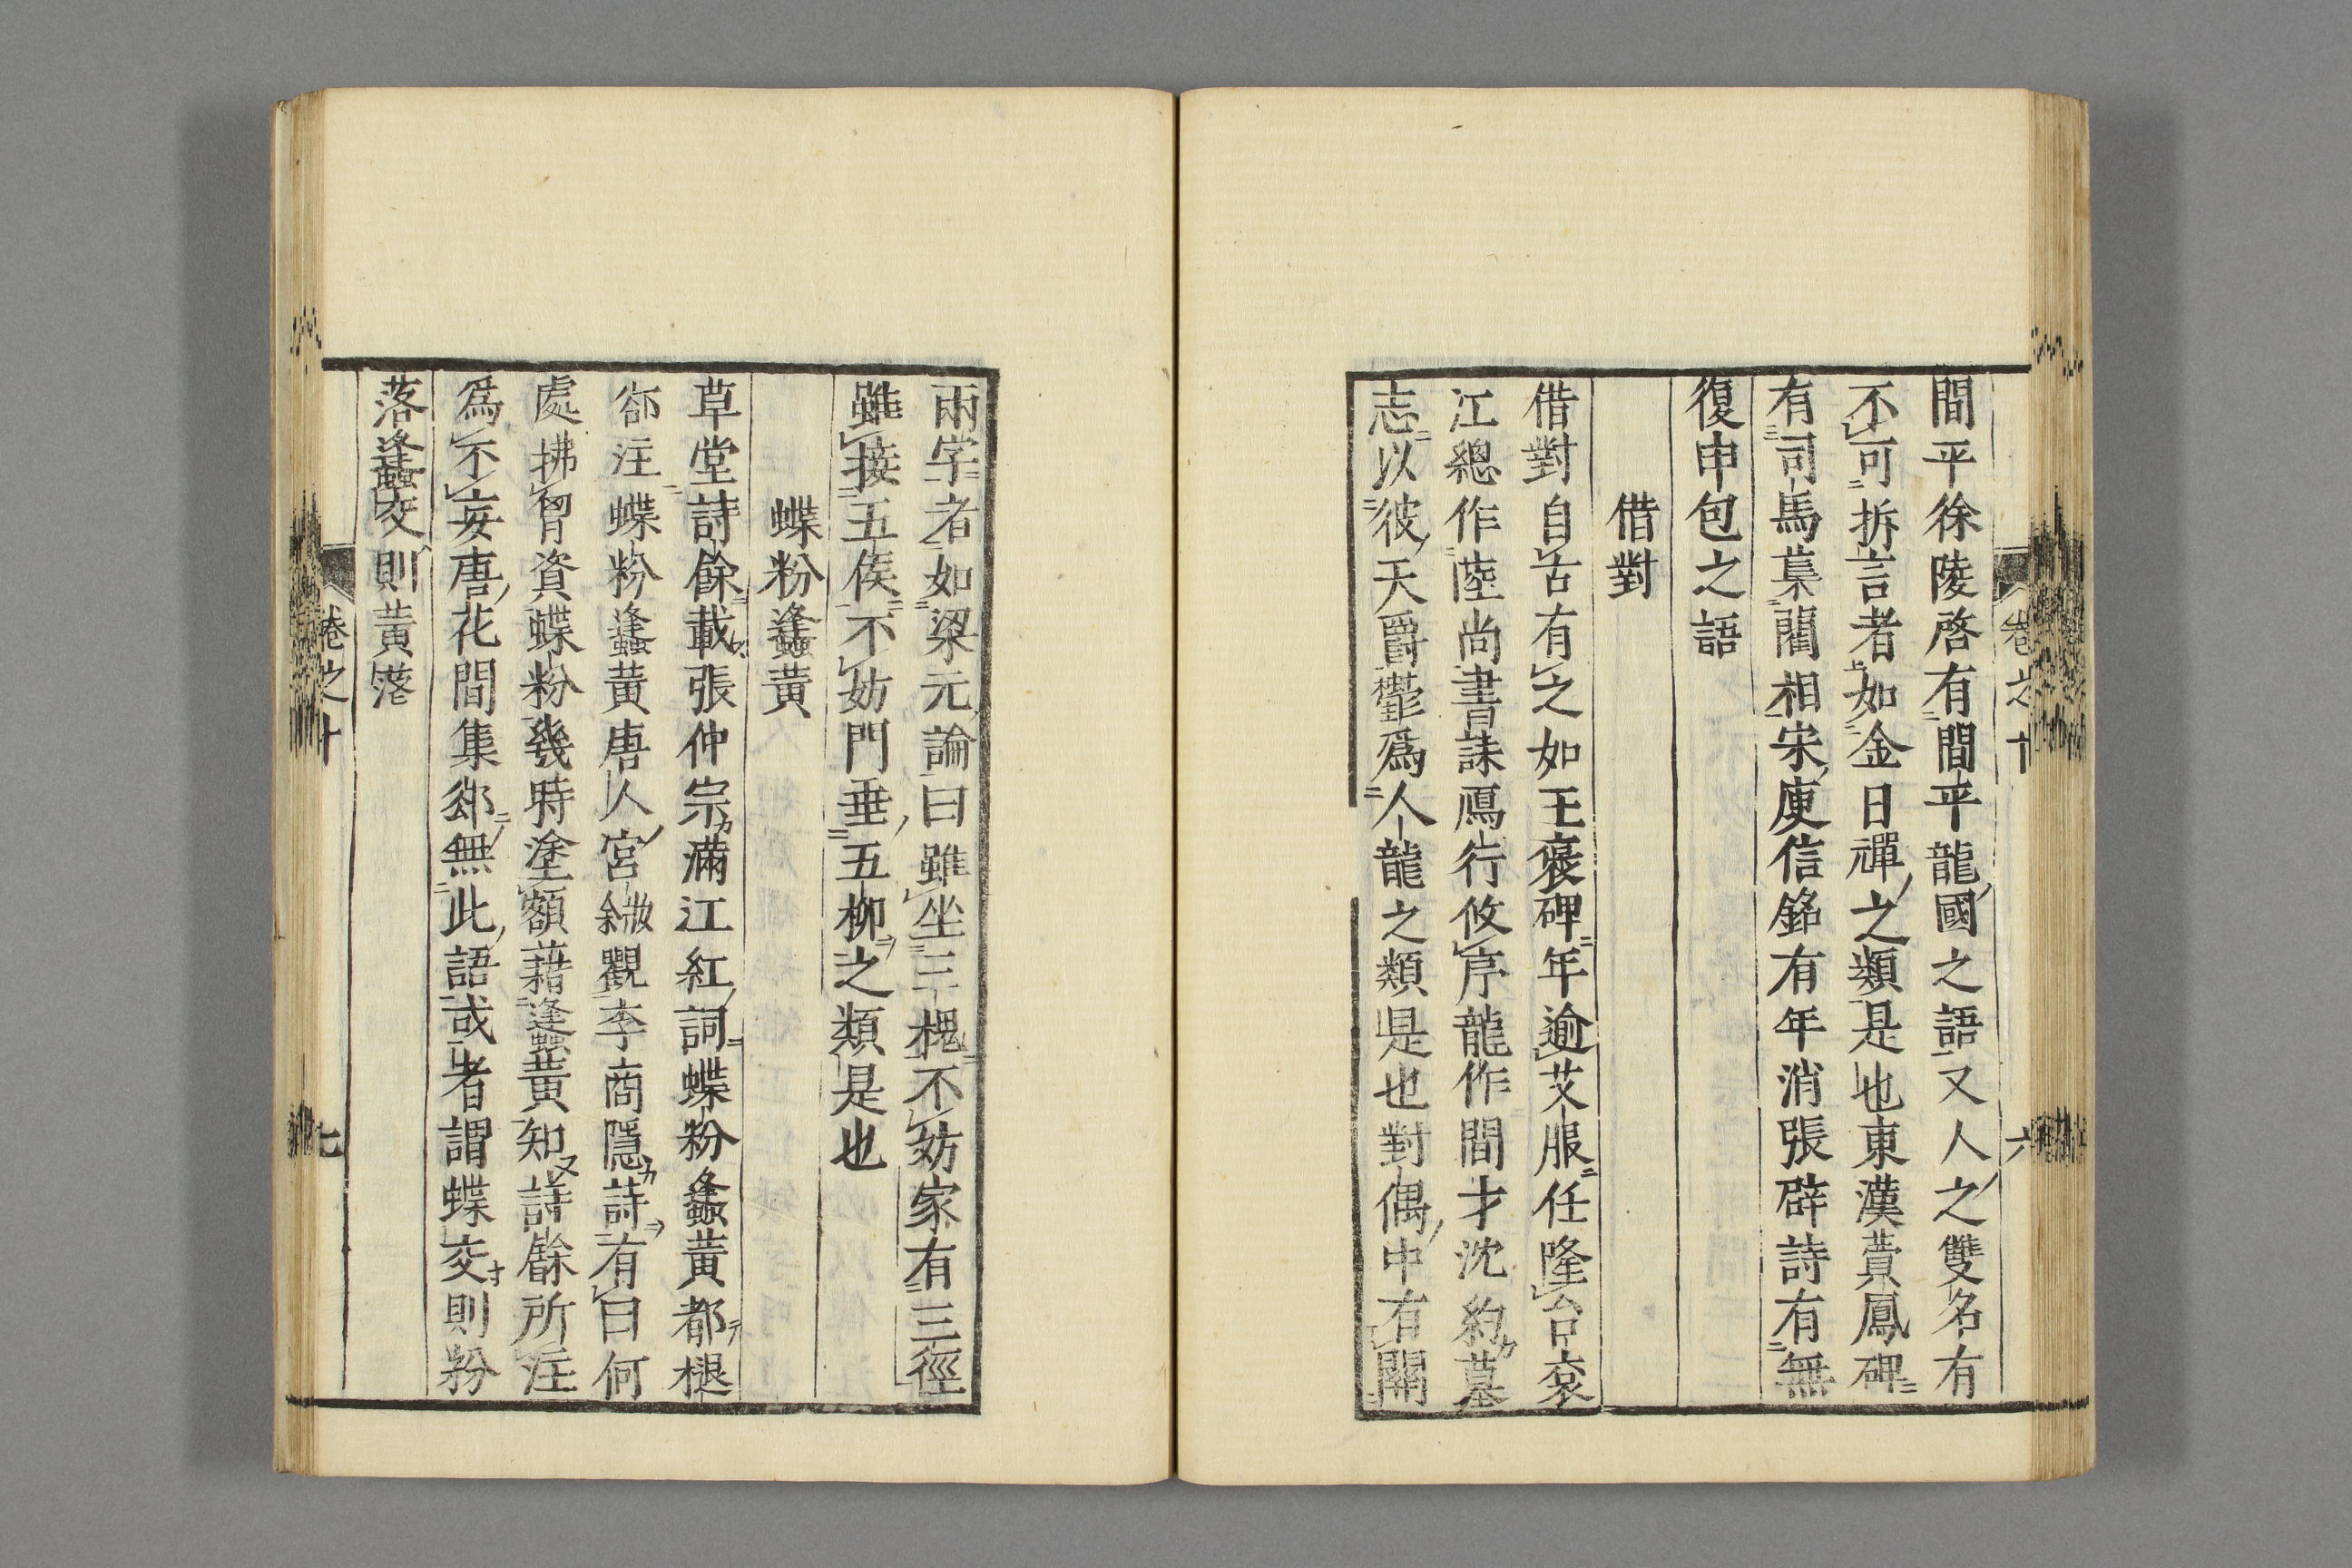 卷之十
六
間平徐陵啓有間平龍國之語又人之雙名有
不可拆言者如金日磾之類是也東漢蕡鳳碑
有司馬慕藺相宋庾信銘有年消張辟詩有無
復申包之語
借對
借對自古有之如王褒碑年逾艾服任隆台袞
江總作陸尚書誄鴈行攸序龍作間才沈約墓
志以彼天爵鬱爲人龍之類是也對偶中有關
兩字者如梁元論曰雖坐三槐不妨家有三徑
雖接五侯不妨門垂五柳之類是也
蝶粉蠭黃
草堂詩餘載張仲宗滿江紅詞蝶粉蠭黃都褪
郤注蝶粉蠭黃唐人宮粧余觀李商隱詩有曰何
處拂胷資蝶粉幾時塗額藉蠭黃知詩餘所注
爲不妄唐花間集郤無此語或者謂蝶交則粉
落蠭交則黃落
卷之十
七